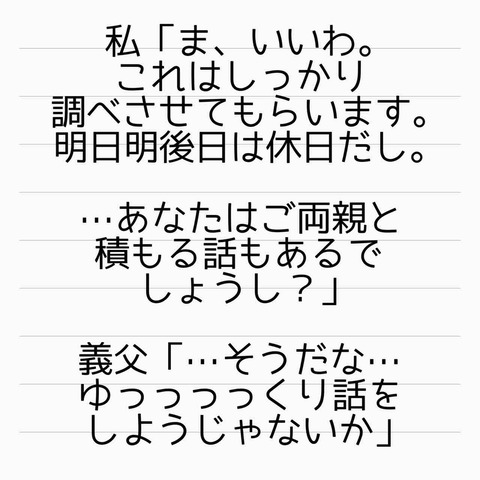 私「ま、いいわ。
これはしっかり
調べさせてもらいます。
明日明後日は休日だし。
…あなたはご両親と
積もる話もあるで
しょうし？」
義父「…そうだな…
ゆっっっっくり話を
しようじゃないか」